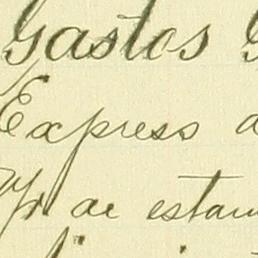 Gastos G
Express a
de estam